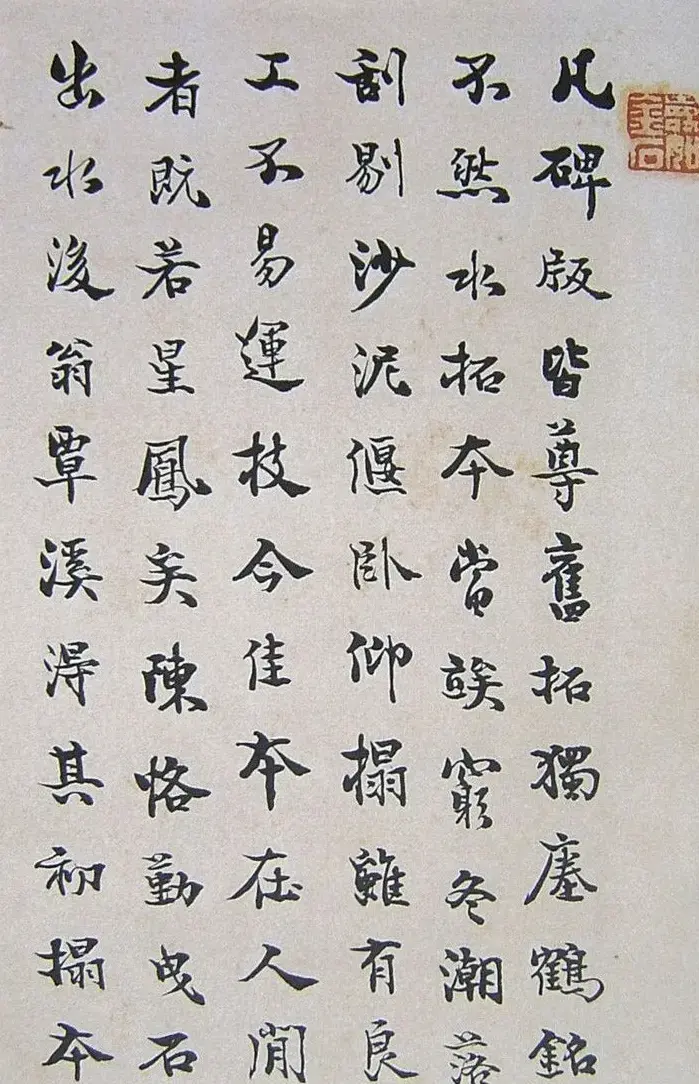 凡碑版皆尊舊拓獨瘞鶴銘
不然水拓本當竢窮冬潮落
刮剔沙泥偃臥仰搨雖有良
工不易運技今佳本在人閒
者既若星鳳矣陳恪勤曳石
出水後翁覃溪得其初搨本